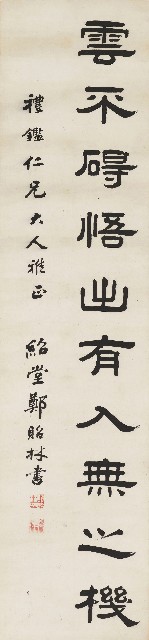 雲不碍悟出有入無之機
禮鑑仁兄大人雅正
紹堂鄭貽林書